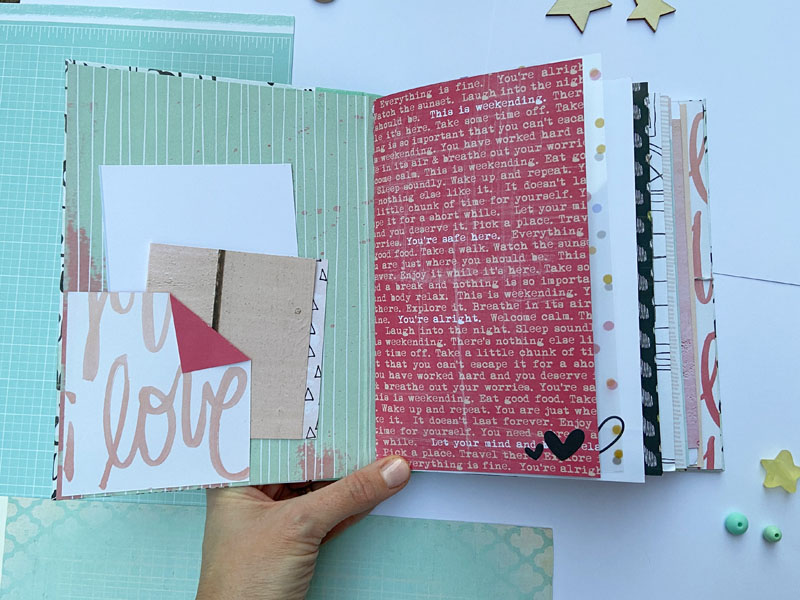 love
Everything is fine. You're alrigh
Watch the sunset. Laugh into the nigh
should be. This is weekending. Ther
le it's here. Take some time off. Take
ng is so important that you can't esca
s weekending. You have worked hard a
e in its air & breathe out your worrie
come calm. This is weekending. Eat go
Sleep soundly. Wake up and repeat. Y
nothing else like it. It doesn't la
little chunk of time for yourself. Y
pe it for a short while. Let your mi
nd you deserve it. Pick a place. Trav
rries. You're safe here. Everything
good food. Take a walk. Watch the sunse
are just where you should be. This
ever. Enjoy it while it's here. Take so
d a break and nothing is so importa
nd body relax. This is weekending. Y
there. Explore it. Breathe in its air
ne. You're alright. Welcome calm. Th
Laugh into the night. Sleep soundl
s weekending. There's nothing else li
e time off. Take a little chunk of ti
t that you can't escape it for a sho
ou have worked hard and you deserve
& breathe out your worries. You're sa
his is weekending. Eat good food. Take
Wake up and repeat. You are just whe
ke it. It doesn't last forever. Enjoy
time for yourself. You need a
while. Let your mind and
Pick a place. Travel there. Explore
Everything is fine. You're alrigh